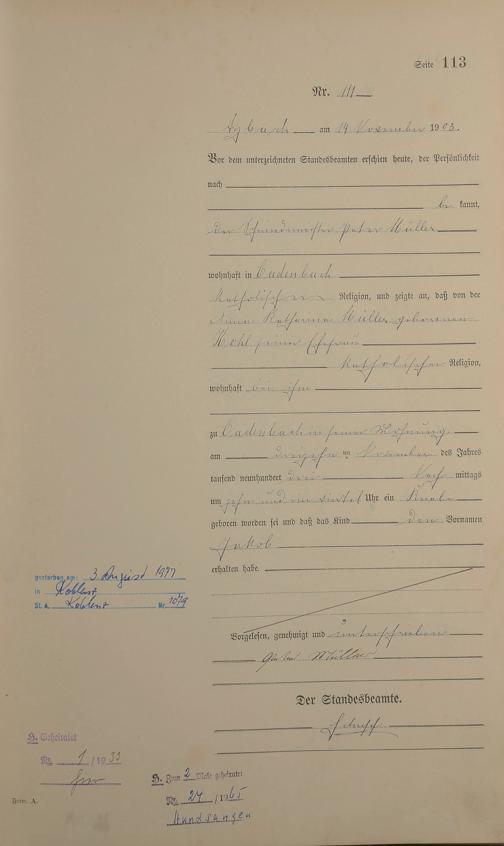 Seite 113
Nr. 111
am 14 November 1903.
Vor dem unterzeichneten Standesbeamten erschien heute, der Persönlichkeit
nach
be kannt,
der Schmiedemeister Peter Müller
wohnhaft in Cadenbach
katholischer Religion, und zeigte an, daß von der
Anna Katharina Müller geborenen
Kohl seiner Ehefrau
katholischer Religion,
wohnhaft bei ihm
zu Cadenbach in seiner Wohnung
am dreizehnten November des Jahres
tausend neunhundert drei Nach mittags
um zehn und ein viertel Uhr ein Knabe
geboren worden sei und daß das Kind den Vornamen
Jakob
erhalten habe.
Vorgelesen, genehmigt und unterschrieben
Peter Müller
Der Standesbeamte.
gestorben am: 3. August 1977
in Koblenz
St. A. Koblenz Nr. 1079
H. Geheiratet
Nr. 1 /1933
H. Zum 2 Male geheiratet
Nr. 24 /1965
Hundsangen
Form. A.